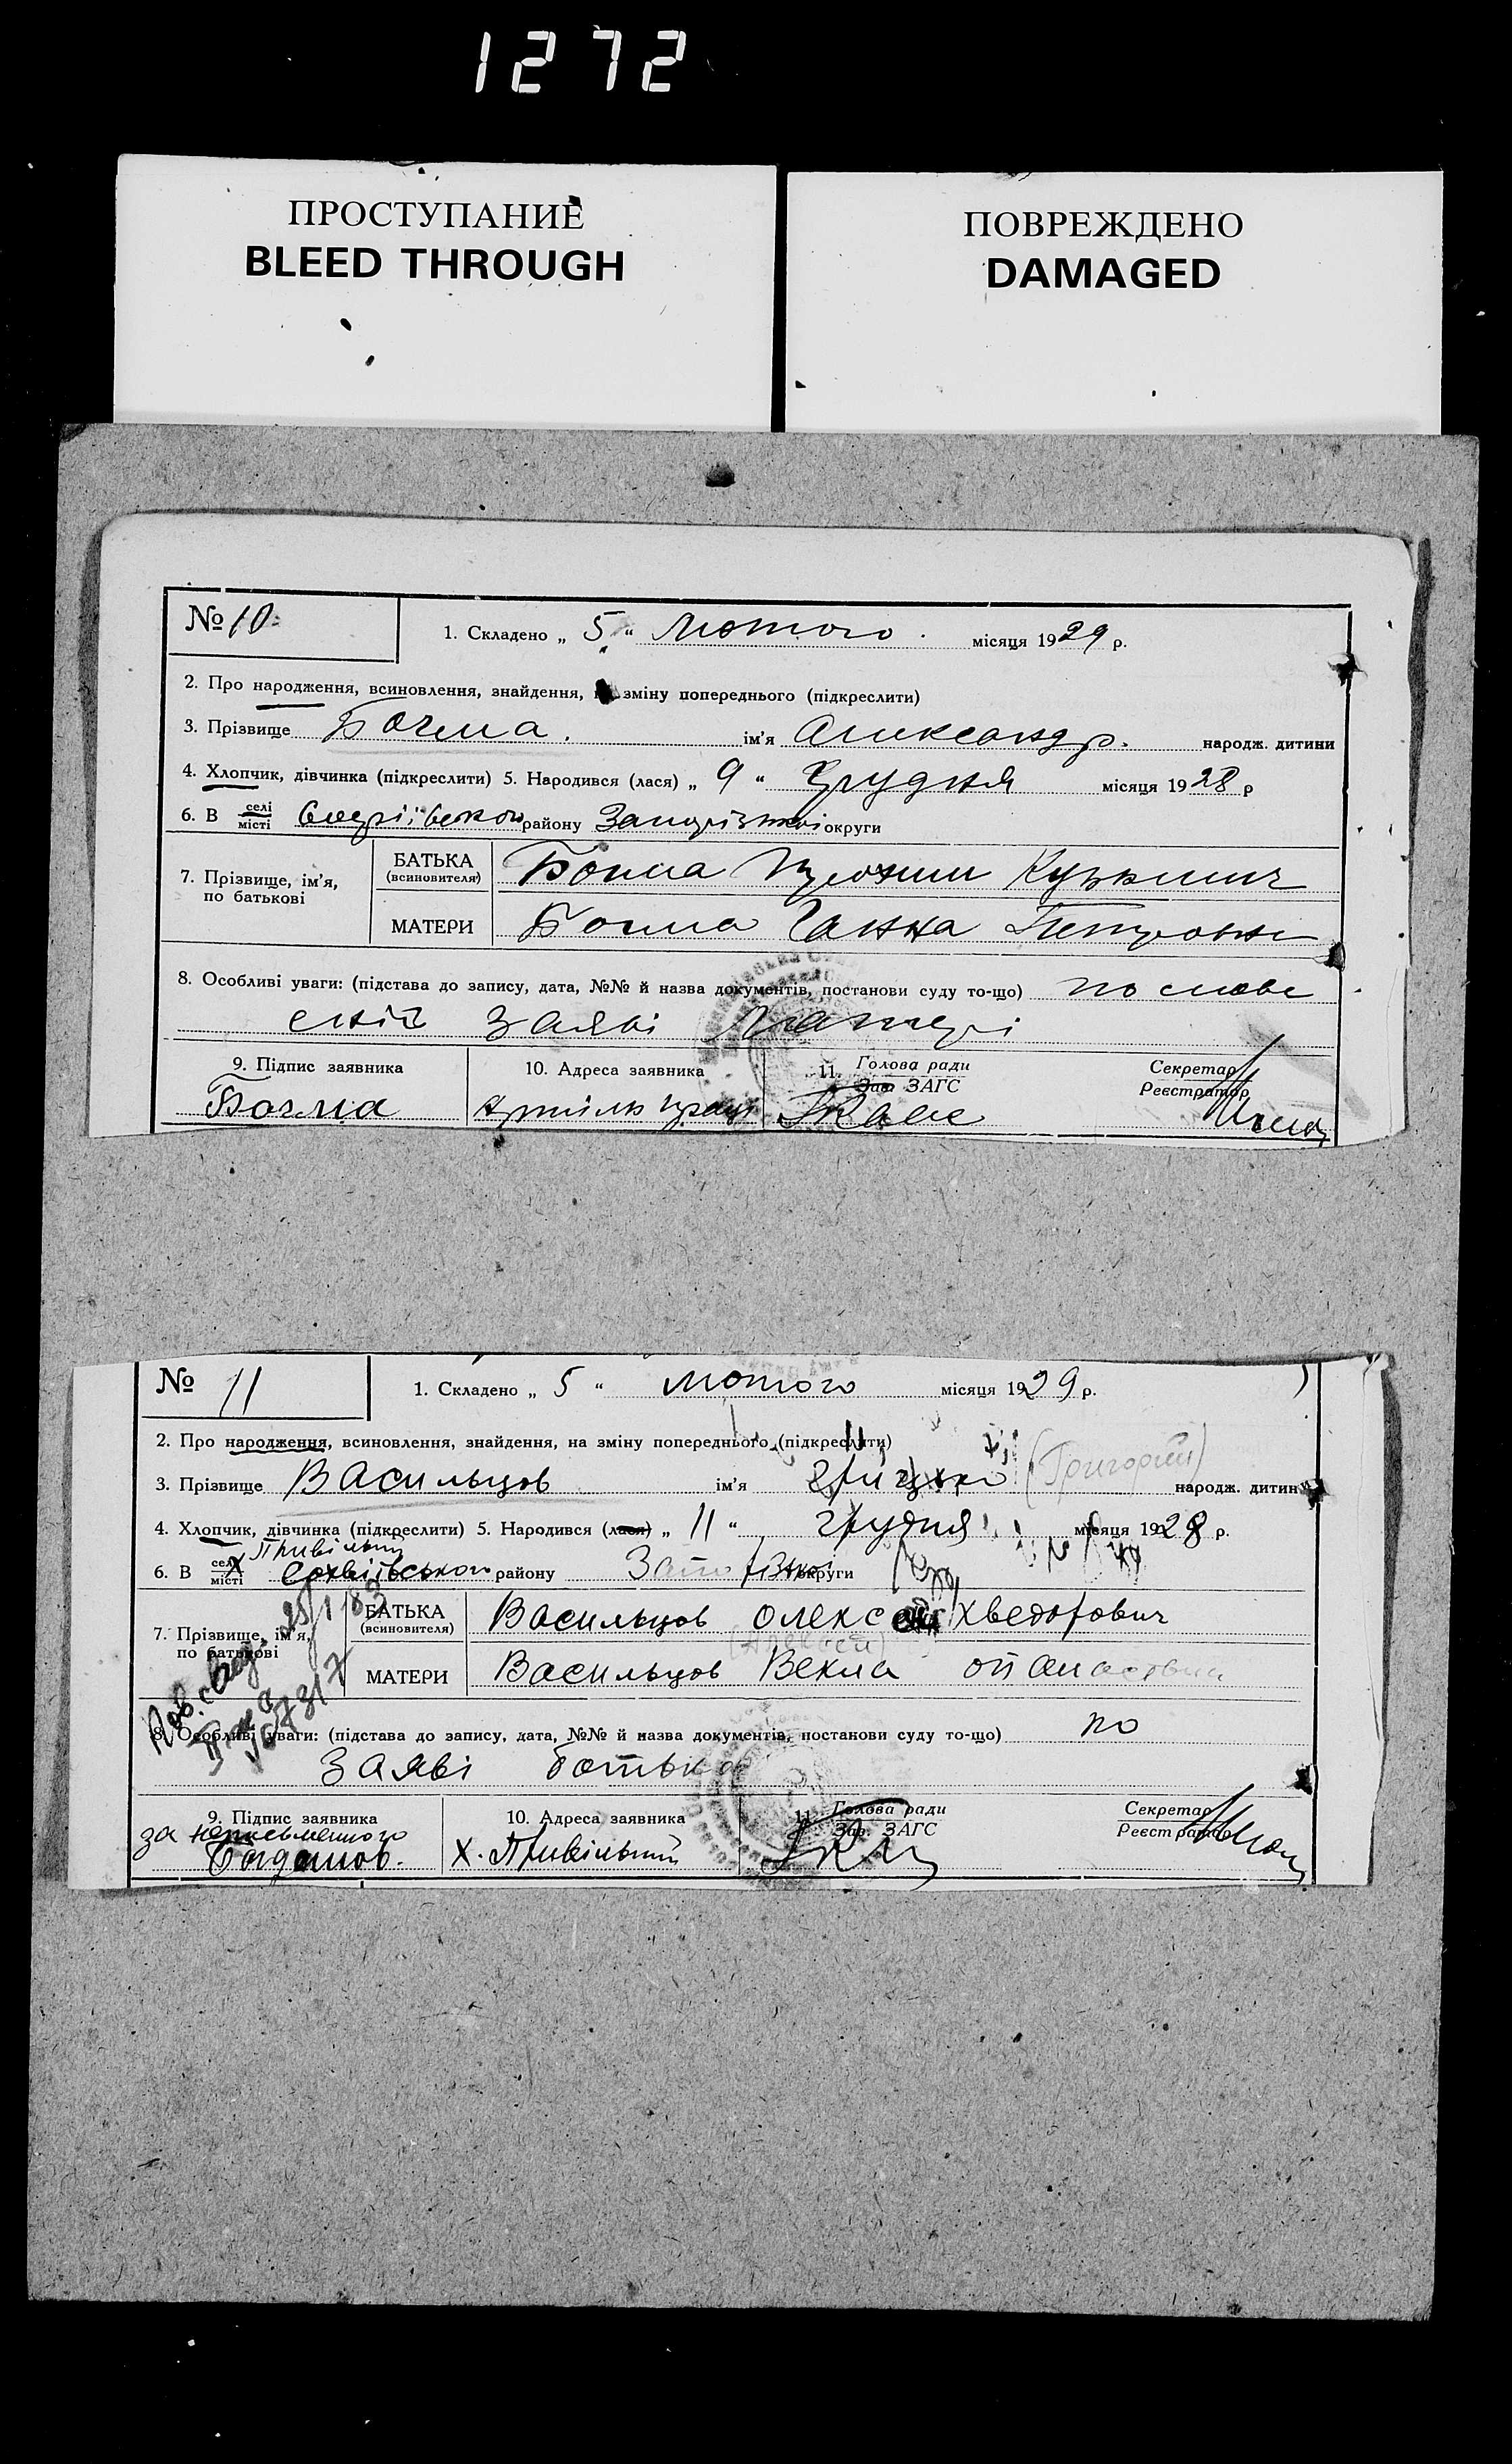 1272
ПРОСТУПАНИЕ
BLEED THROUGH
ПОВРЕЖДЕНО
DAMAGED
№ 10
1. Складено „ 5 “ Лютого місяця 1929 р.
2. Про народження, всиновлення, знайдення, зміну попереднього (підкреслити)
3. Прізвище Бочма ім’я Олександр народж. дитини
4. Хлопчик, дівчинка (підкреслити) 5. Народився (лася) „ 9 “ Грудня місяця 1928 р
6. В селі місті району Запорізької округи
7. Прізвище, ім’я, по батькові
БАТЬКА (всиновителя) Бочма Кузьмич
МАТЕРИ Бочма Ганна Петровна
8. Особливі уваги: (підстава до запису, дата, №№ й назва документів, постанови суду то-що) по слове
сній заяві матері
9. Підпис заявника 10. Адреса заявника 11. Голова ради Зав. ЗАГС Секретар Реєстратор
Бочма
№ 11
1. Складено „ 5 “ Лютого місяця 1929 р.
2. Про народження, всиновлення, знайдення, на зміну попереднього (підкреслити)
3. Прізвище Васильцов ім’я Грицько (Григорий) народж. дитини
4. Хлопчик, дівчинка (підкреслити) 5. Народився (лася) „ 11 “ грудня місяця 1928 р.
Привільний
6. В селі місті Софиївського району Запорізької округи
7. Прізвище, ім’я, по батькові
БАТЬКА (всиновителя) Васильцов Олексей Хведорович
(Алексей)
МАТЕРИ Васильцов Векла
8. Особливі уваги: (підстава до запису, дата, №№ й назва документів, постанови суду то-що) по
заяві батька
9. Підпис заявника 10. Адреса заявника 11. Голова ради Зав. ЗАГС Секретар Реєстратор
за неписьменного
х. Привільний